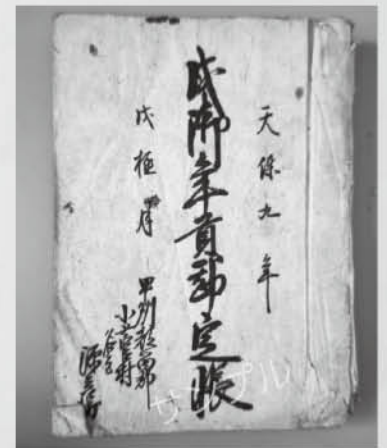 天保九年
戌御年貢勘定帳
戌極月
甲州都留郡
小沼村
サンプル